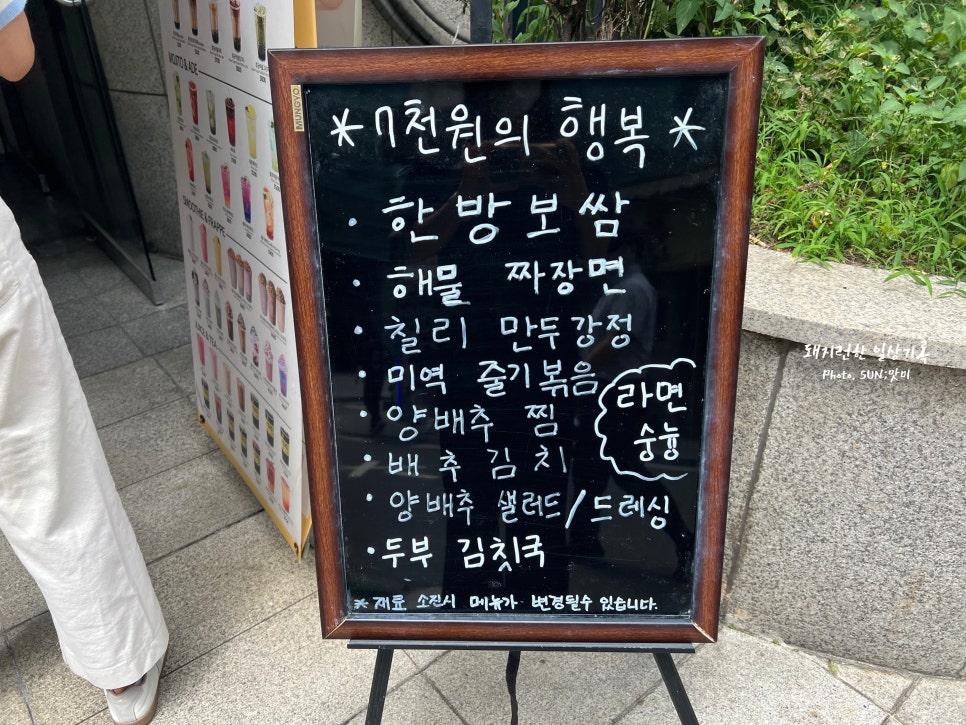 MUNGYO
* 7천원의 행복 *
· 한방보쌈
· 해물 짜장면
· 칠리 만두강정
· 미역 줄기볶음
· 양배추 찜
라면
숭늉
· 배추김치
· 양배추 샐러드/드레싱
· 두부 김칫국
* 재료 소진시 메뉴가 변경될수 있습니다.
MOJITO & ADE
SMOOTHIE & FRAPPE
돼지런한 일상기록
Photo. SUN;맛미